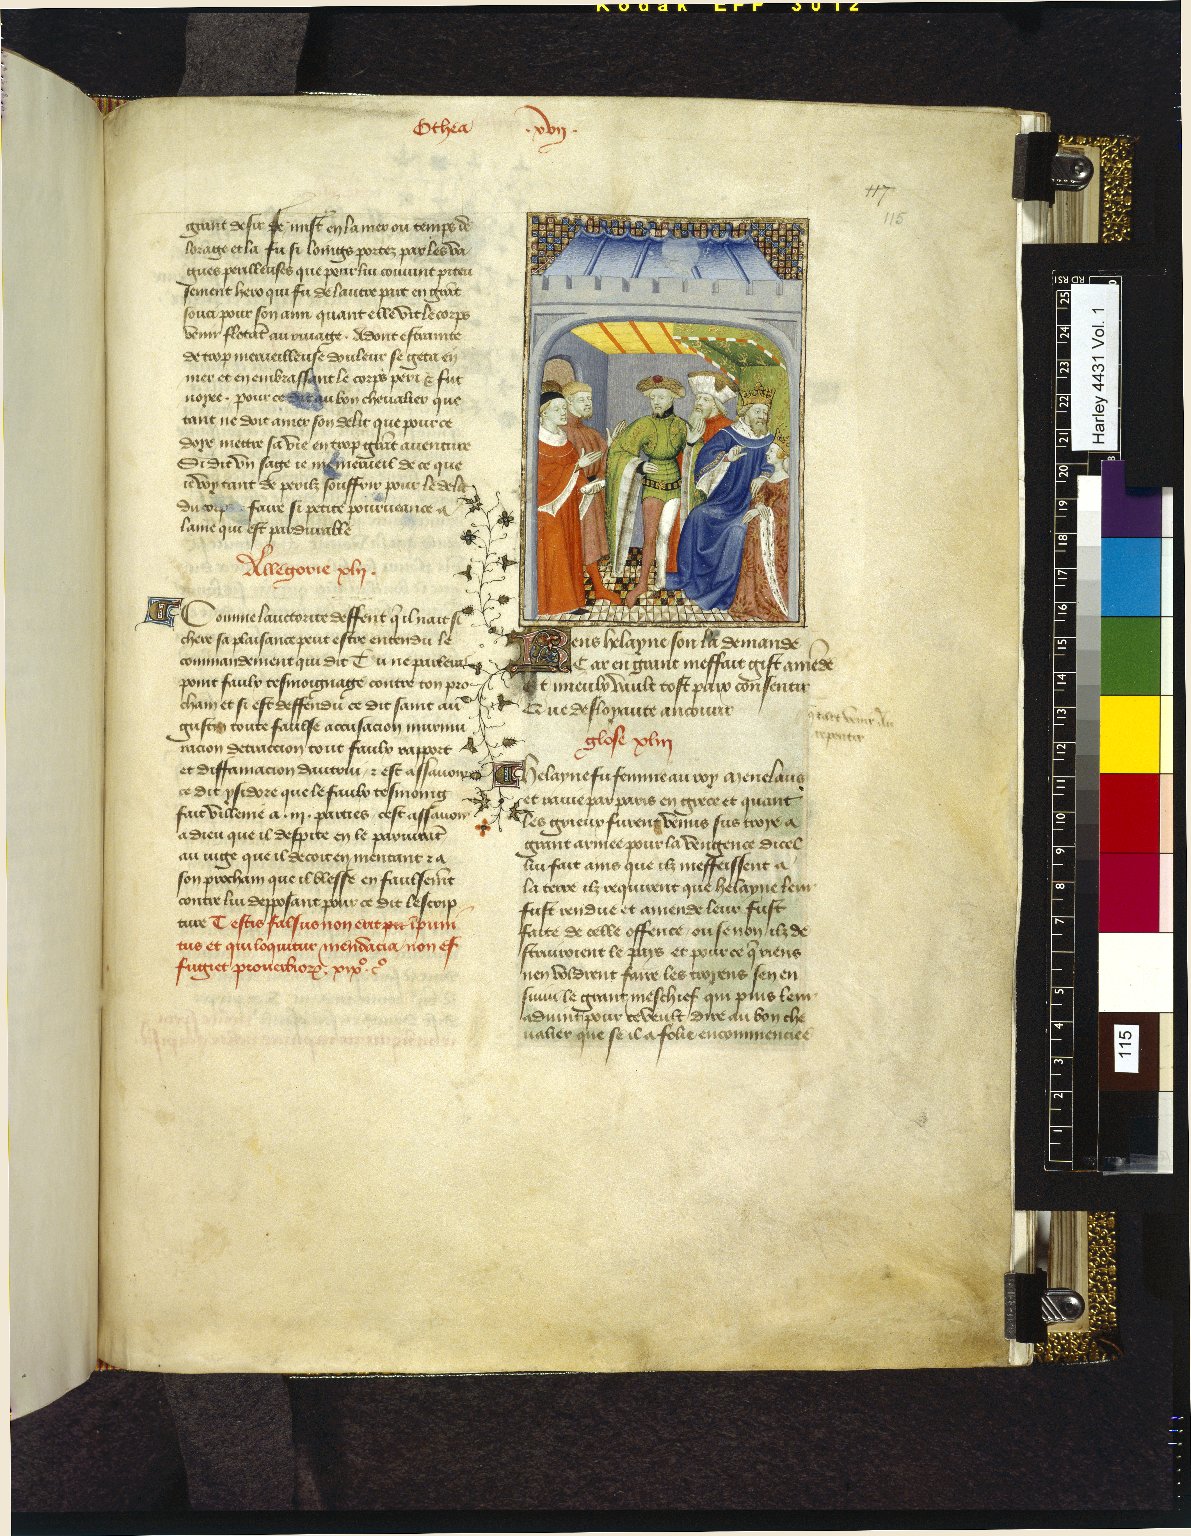 Kodak EPP 3012
Othea .xvij.
117
115
grant desir se mist en la mer ou temps de
lorage et la fu si loings portez par les va
gues perilleuses que pour lui couuint piteu
sement hero qui fu de lautre part en grāt
souci pour son ami quant elle vit le corps
venir flotāt au riuage. Adont estrainte
de trop merueilleuse douleur se geta en
mer et en embrassant le corps peri et fut
noyee. pour ce dit au bon cheualier que
tant ne doit amer son delit que pour ce
doye mettre sa vie en trop grāt auenture
Si dit vn sage ie me merueil de ce que
ie voy tant de perilz souffrir pour le delit
du corps faire si petite pourueance a
lame qui est pardurable
Allegorie xlij
Comme lauctorite deffent q̄ il nait si
chere sa plaisance peut estre entendu le
commandement qui dit Tu ne parleras
point faulx tesmoignage contre ton pro
chain et si est deffendu ce dit saint au
gustin toute faulse accusacion murmu
racion detraccion tout faulx rapport
et diffamacion dautrui et est assauoir
ce dit ysidore que le faulx tesmoing
fait villenie a .iij. parties. cest assauoir
a dieu que il despite en le pariurāt
au iuge que il decoit en mentant et a
son prochain que il blesse en faulsemēt
contre lui depposant pour ce dit lescrip
ture Testis falsus non erit impuni
tus et qui loquitur mendacia non ef
fugiet prouerbiorū. xixº. cº
Rens helayne son la demande
Car en grant meffait gist amēde
Et mieulx vault tost paix consentir
Que desloyaute ancourir
glose xliij
Helayne fu femme au roy Menelaus
et rauie par paris en grece et quant
les grieux furent venus sus troye a
grant armee pour la vengence dicel
lui fait ains que ilz meffeissent a
la terre ilz requirent que helayne leur
fust rendue et amende leur fust
faite de celle offence ou se non ilz de
struiroient le pays et pour ce q̄ riens
nen voldrent faire les troyens sen en
suiui le grant meschief qui puis leur
aduint pour ce veult dire au bon che
ualier que se il a folie encommenciee
repentir
Harley 4431 Vol. 1
115